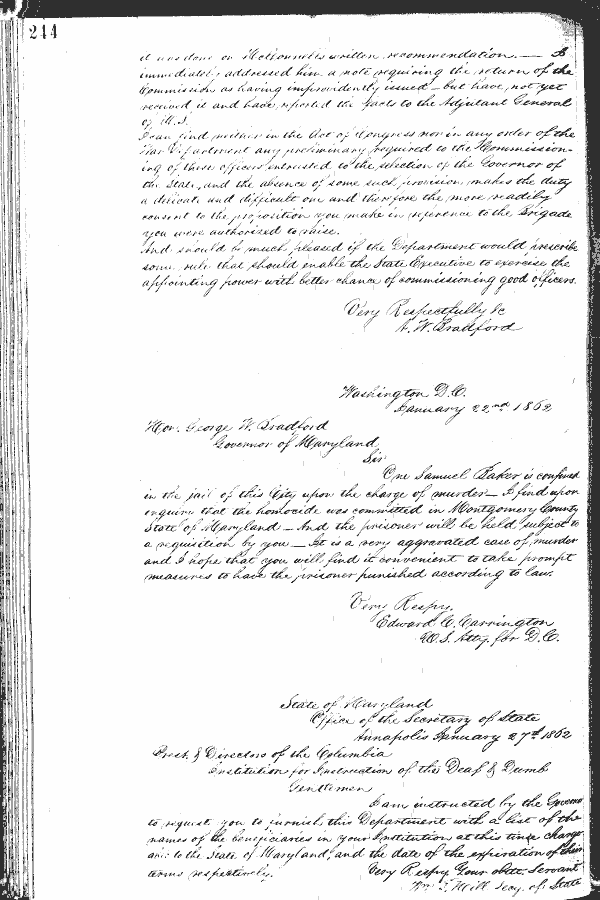 244
it was done on McConnell's written recommendation. — I
immediately addressed him a note requiring the return of the
Commission as having improvidently issued — but have not yet
received it and have reported the facts to the Adjutant General
of U.S.
I can find neither in the Act of Congress nor in any order of the
War Department any preliminary required to the Commission-
ing of these officers intrusted to the selection of the Governor of
the State, and the absence of some such provision makes the duty
a delicate and difficult one and therefore the more readily
consent to the proposition you make in reference to the Brigade
you were authorized to raise.
And should be much pleased if the Department would prescribe
some rule that should enable the State Executive to exercise the
appointing power with better chance of commissioning good officers.
Very Respectfully &c
A. W. Bradford
Washington D.C.
January 22nd 1862
Hon. George W. Bradford
Governor of Maryland
Sir
One Samuel Baker is confined
in the jail of this City upon the charge of murder — I find upon
enquiry that the homocide was committed in Montgomery County
State of Maryland — And the prisoner will be held subject to
a requisition by you — It is a very aggravated case of murder
and I hope that you will find it convenient to take prompt
measures to have the prisoner punished according to law.
Very Respy.
Edward C. Carrington
U.S. Atty. for D.C.
State of Maryland
Office of the Secretary of State
Annapolis January 27th 1862
Prest. & Directors of the Columbia
Institution for Instruction of the Deaf & Dumb
Gentlemen
I am instructed by the Governor
to request you to furnish this Department with a list of the
names of the beneficiaries in your Institution at this time charge
able to the State of Maryland, and the date of the expiration of their
terms respectively. Very Respy Your obte. Servant
Wm. T. Hill Secy. of State